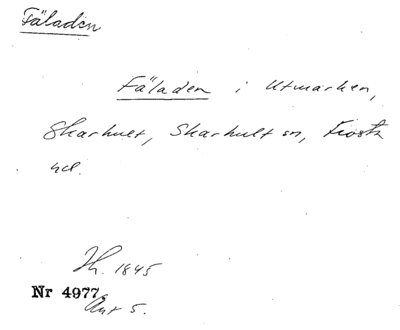 Fäladen
Fäladen i Utmarken,
Skarhult, Skarhult sn, Frosta
hd.
Jh. 1845
Nr 4977
Akt 5.